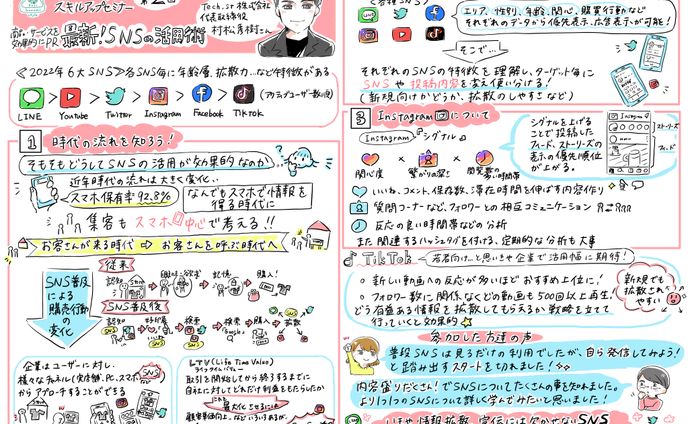 スキルアップセミナー
Tech.st 株式会社
代表取締役
村松秀樹さん
商品・サービスを
効果的にPR
最新!SNSの活用術
≪2022年6大SNS≫各SNS毎に年齢層、拡散力…など特徴がある
LINE > Youtube > Twitter > Instagram > Facebook > TikTok
(アクティブユーザー数順)
1 時代の流れを知ろう!
そもそもどうしてSNSの活用が効果的なのか
近年時代の流れは大きく変化…
スマホ保有率92.8%
なんでもスマホで情報を
得る時代に
集客もスマホ中心で考える!!
お客さんが来る時代 ⇒ お客さんを呼ぶ時代へ
SNS普及
による
購買行動の
変化
従来
認知
記憶
購入!
SNS普及後
認知
検索
検索
購入
拡散
SNS
企業はユーザーに対し、
様々なチャネル(実店舗、PC、スマホ、SNS)
からアプローチすることができる
LTV (Life Time Value)
ライフタイムバリュー
取引を開始してから終了するまでに
自社に対してどれだけ利益をもたらしたか
これを最大化させるには
エリア、性別、年齢、関心、購買行動など
それぞれのデータから優先表示、広告表示が可能!
そこで…
それぞれのSNSの特徴を理解し、ターゲット毎に
SNSや投稿内容を変え使い分ける!
(新規向けかどうか、拡散のしやすさなど)
3 Instagramについて
Instagram シグナル
関心度 × 繋がりの深さ × 閲覧者の多い時間帯
シグナルを上げる
ことで投稿した
フィード、ストーリーズの
表示の優先順位
が上がる。
ストーリーズ
フィード
いいね、コメント、保存数、滞在時間を伸ばす内容作り
質問コーナーなど、フォロワーとの相互コミュニケーション
反応の良い時間帯などの分析
また関連するハッシュタグを付ける、定期的な分析も大事
TikTok
若者向け…と思いきや企業で活用幅に期待!
・新しい動画への反応が多いほどおすすめ上位に!
・フォロワー数に関係なくどの動画も500回以上再生!
どう有益ある情報を拡散してもらえるか戦略を立てて
行っていくと効果的
新規でも
拡散され
やすい
参加した方達の声
普段SNSは見るだけの利用でしたが、自ら発信してみよう!
と踏み出すスタートを切れました!
内容盛りだくさん!でSNSについてたくさんの事を知れました。
より1つ1つのSNSについて詳しく学んでみたいと思いました!